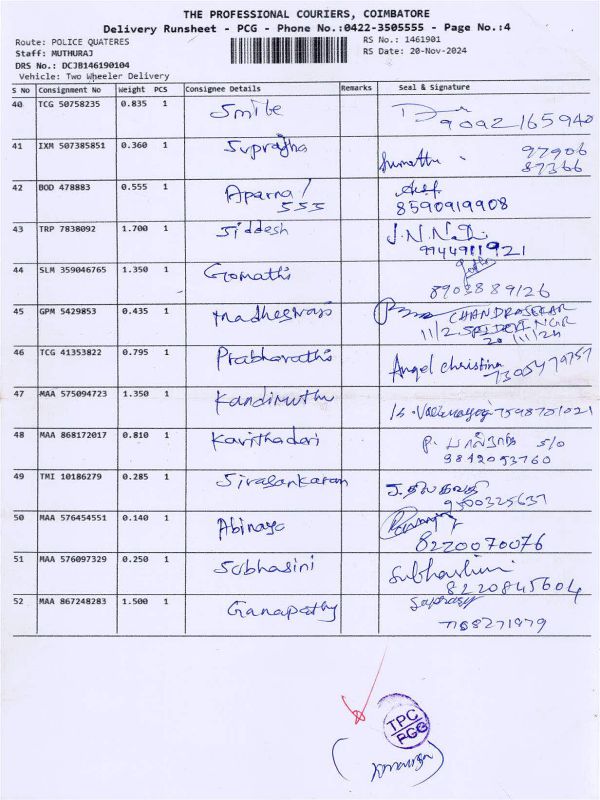 THE PROFESSIONAL COURIERS, COIMBATORE
Delivery Runsheet - PCG - Phone No.:0422-3505555 - Page No.:4
Route: POLICE QUATERES
Staff: MUTHURAJ
DRS No.: DCJB146190104
Vehicle: Two Wheeler Delivery
RS No.: 1461901
RS Date: 20-Nov-2024
S No Consignment No Weight PCS Consignee Details Remarks Seal & Signature
40 TCG 50758235 0.835 1 Smile
9092165940
41 IXM 507385851 0.360 1 Suprajha Sumathi 97906
87366
42 BOD 478883 0.555 1 Aparna/
555 8590919908
43 TRP 7838092 1.700 1 Siddesh
9944911921
44 SLM 359046765 1.350 1 Gomathi
8903889126
45 GPM 5429853 0.435 1 CHANDRASEKAR
11/2
20/11/24
46 TCG 41353822 0.795 1 Prabharathi Angel christina
47 MAA 575094723 1.350 1 Kandimuthu 7598701021
48 MAA 868172017 0.810 1 S/O
9842053760
49 TMI 10186279 0.285 1 Sivasankaran J. திலகவதி
9500325637
50 MAA 576454551 0.140 1 Abinaya
8220070076
51 MAA 576097329 0.250 1 Subhasini Subhashini
8220845604
52 MAA 867248283 1.500 1 Ganapathy
TPC
PCG